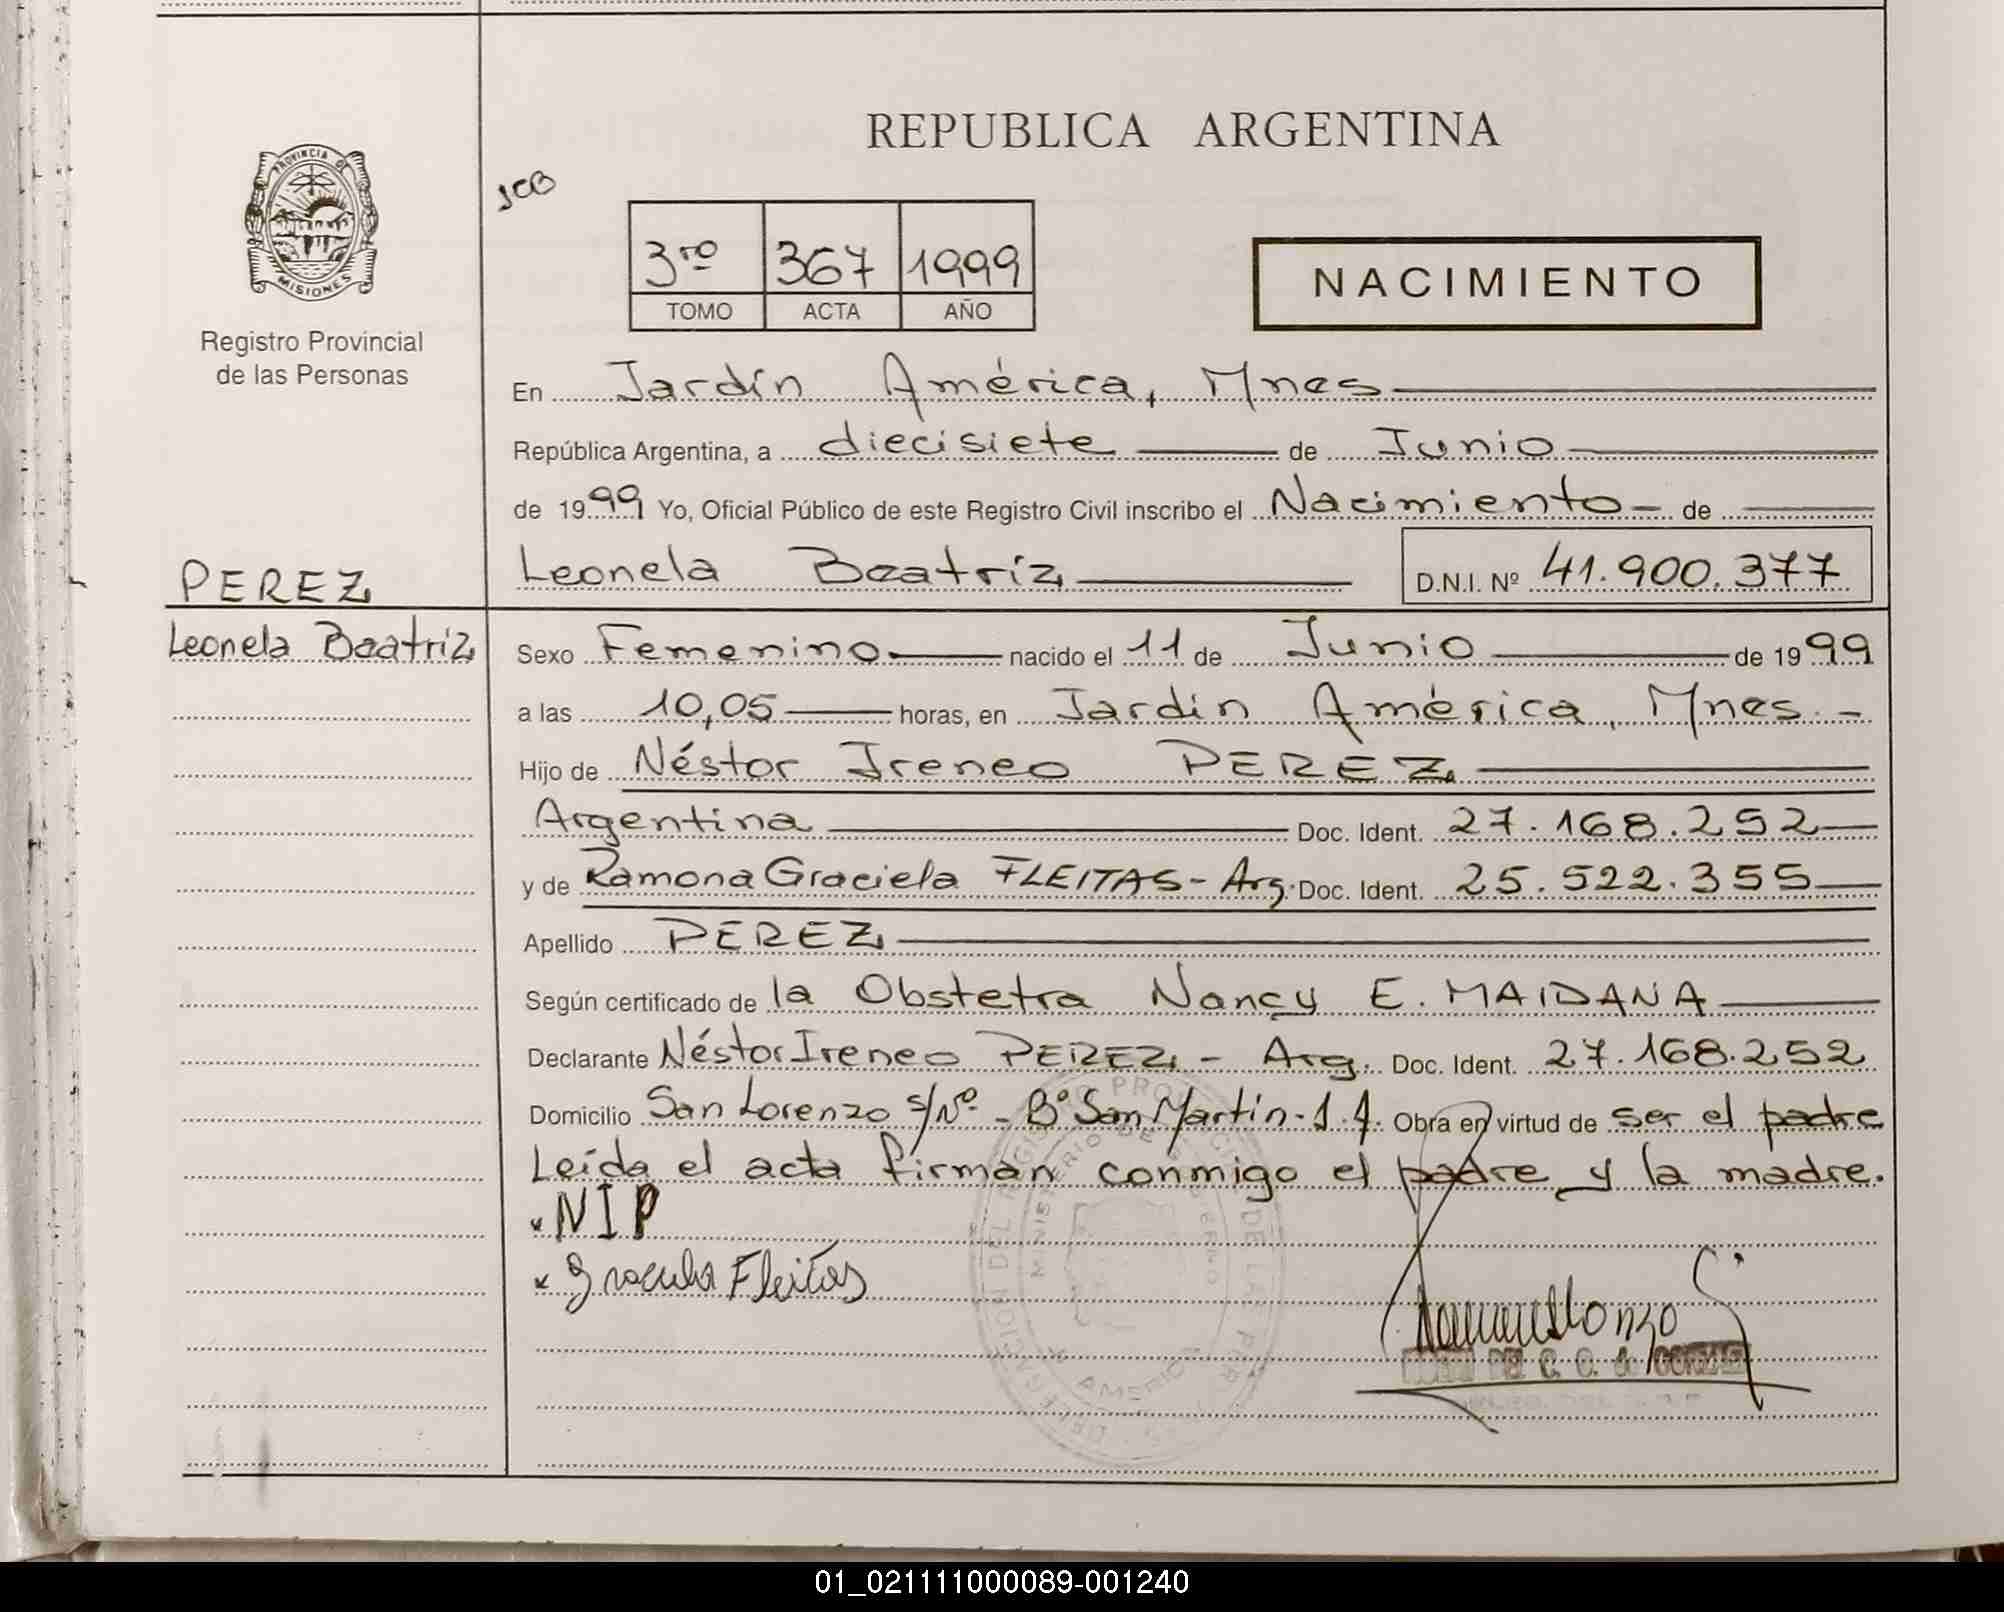 REPUBLICA ARGENTINA
PROVINCIA DE
MISIONES
Registro Provincial
de las Personas
JCB
3ro 367 1999
TOMO ACTA AÑO
NACIMIENTO
En Jardín América, Mnes
República Argentina, a diecisiete de Junio
de 1999 Yo, Oficial Público de este Registro Civil inscribo el Nacimiento de
Leonela Beatriz D.N.I. Nº 41.900.377
PEREZ
Leonela Beatriz
Sexo Femenino nacido el 11 de Junio de 1999
a las 10,05 horas, en Jardín América, Mnes.-
Hijo de Néstor Ireneo PEREZ
Argentina Doc. Ident. 27.168.252
y de Ramona Graciela FLEITAS - Arg. Doc. Ident. 25.522.355
Apellido PEREZ
Según certificado de la Obstetra Nancy E. MAIDANA
Declarante Néstor Ireneo PEREZ - Arg. Doc. Ident. 27.168.252
Domicilio San Lorenzo s/Nº - Bº San Martín - J.A. Obra en virtud de ser el padre
Leída el acta firman conmigo el padre y la madre.
x NIP
x Graciela Fleitas
01_021111000089-001240